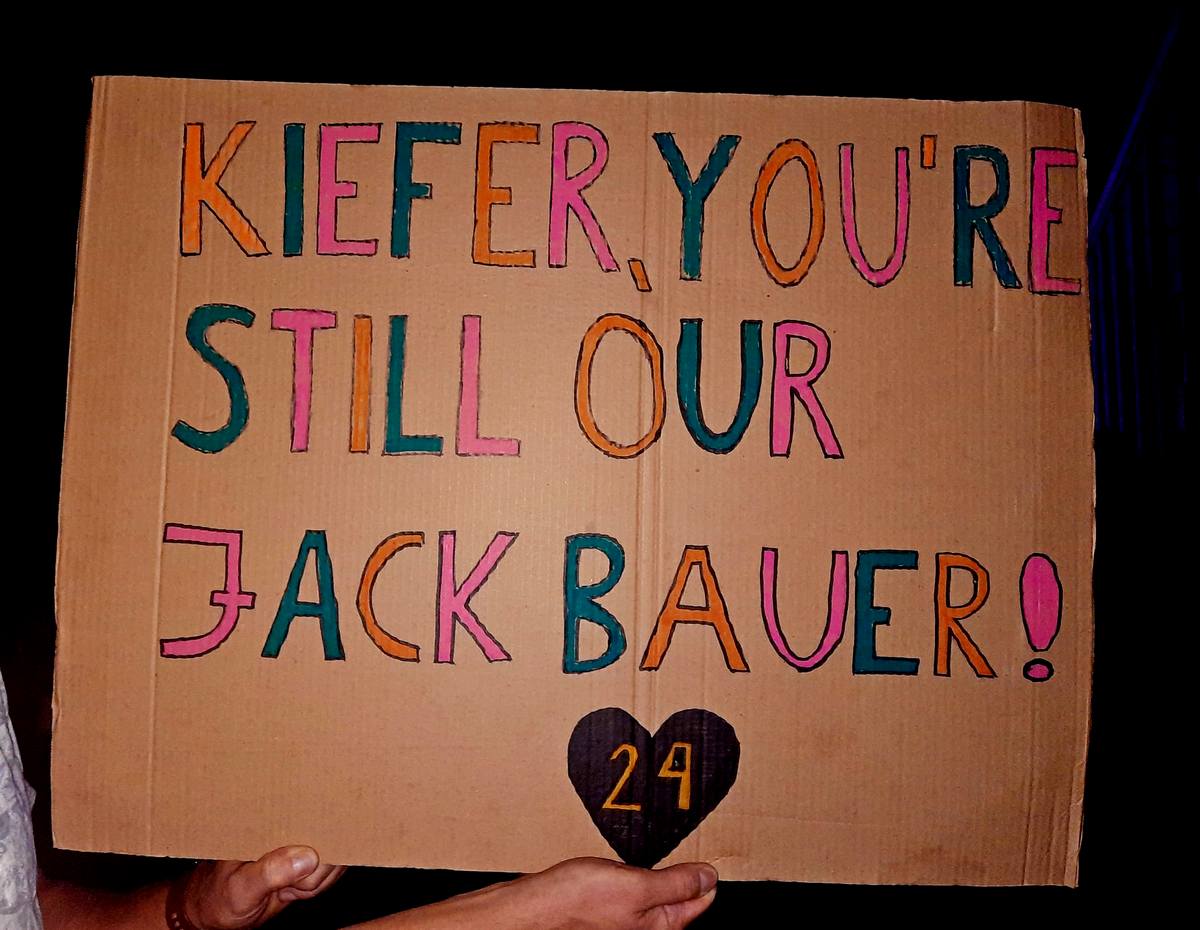 KIEFER, YOU'RE
STILL OUR
JACK BAUER!
24